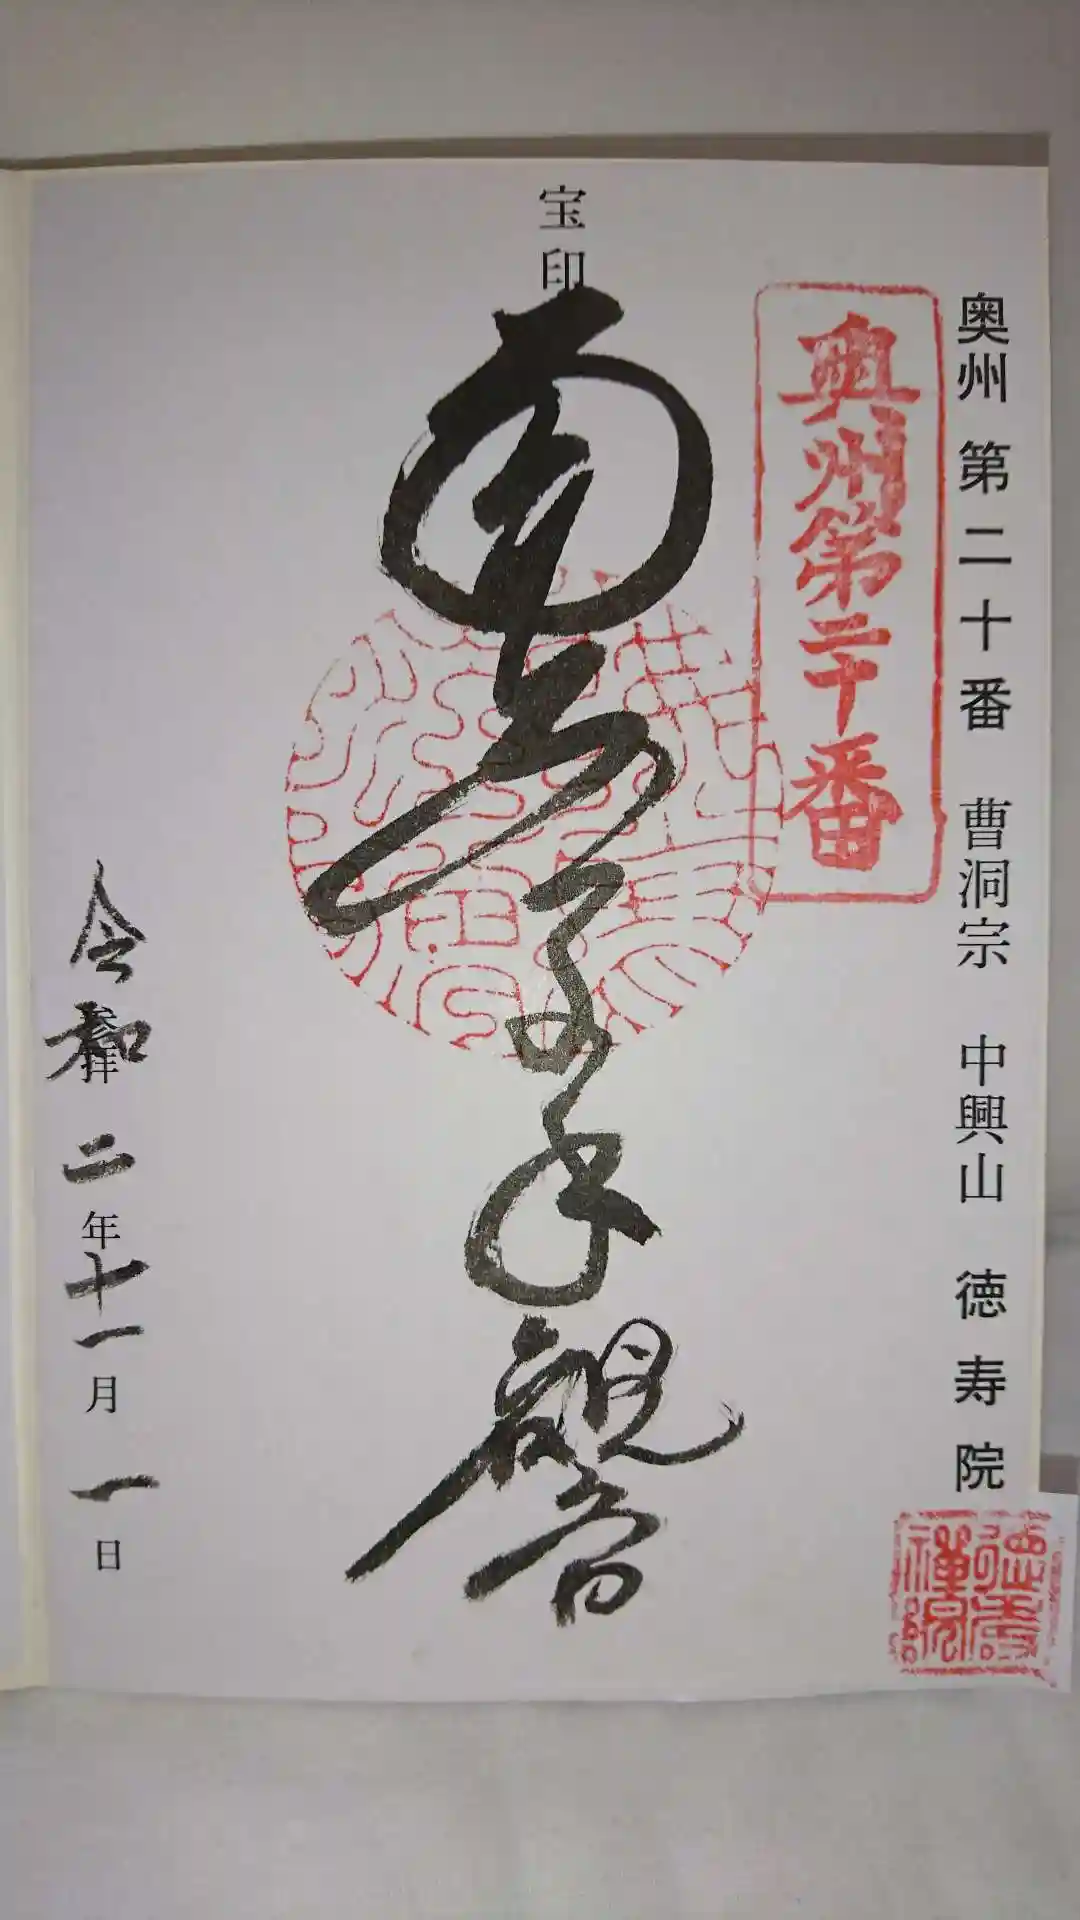 奥州第二十番 曹洞宗 中興山 徳寿院
奥州第二十番
宝印
南無千手観音
令和二年十一月一日
徳寿
禅院